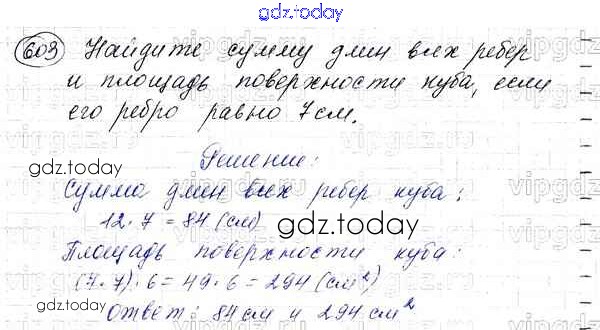 gdz.today
603 Найдите сумму длин всех ребер
и площадь поверхности куба, если
его ребро равно 7 см.
gdz.today
Решение:
Сумма длин всех ребер куба:
12·7=84 (см)
gdz.today
Площадь поверхности куба:
(7·7)·6=49·6=294 (см²)
gdz.today
Ответ: 84 см и 294 см²